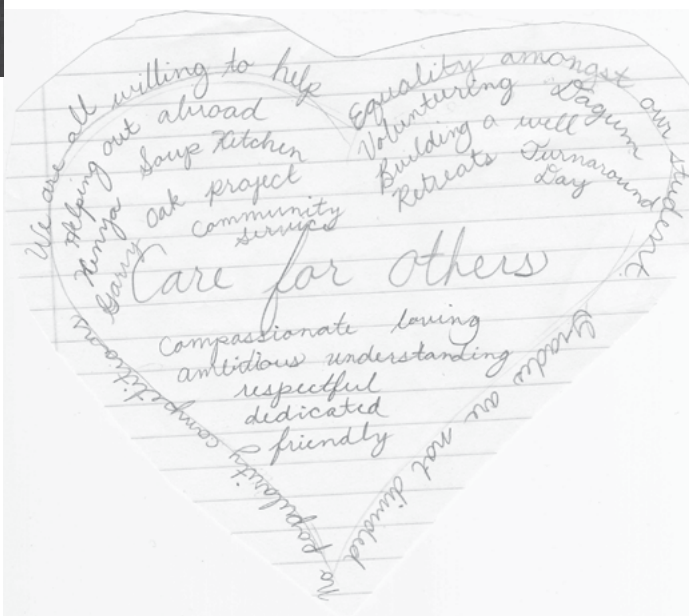 We are all willing to help
Helping out abroad
Kenya Soup Kitchen
Garry Oak project
Community
service
Equality amongst our student
Volunturing Dagum
Building a well Turnaround
Retreats Day
Care for others
compassionate loving
ambitious understanding
respectful
dedicated
friendly
Grades are not divided
no popularity competitions